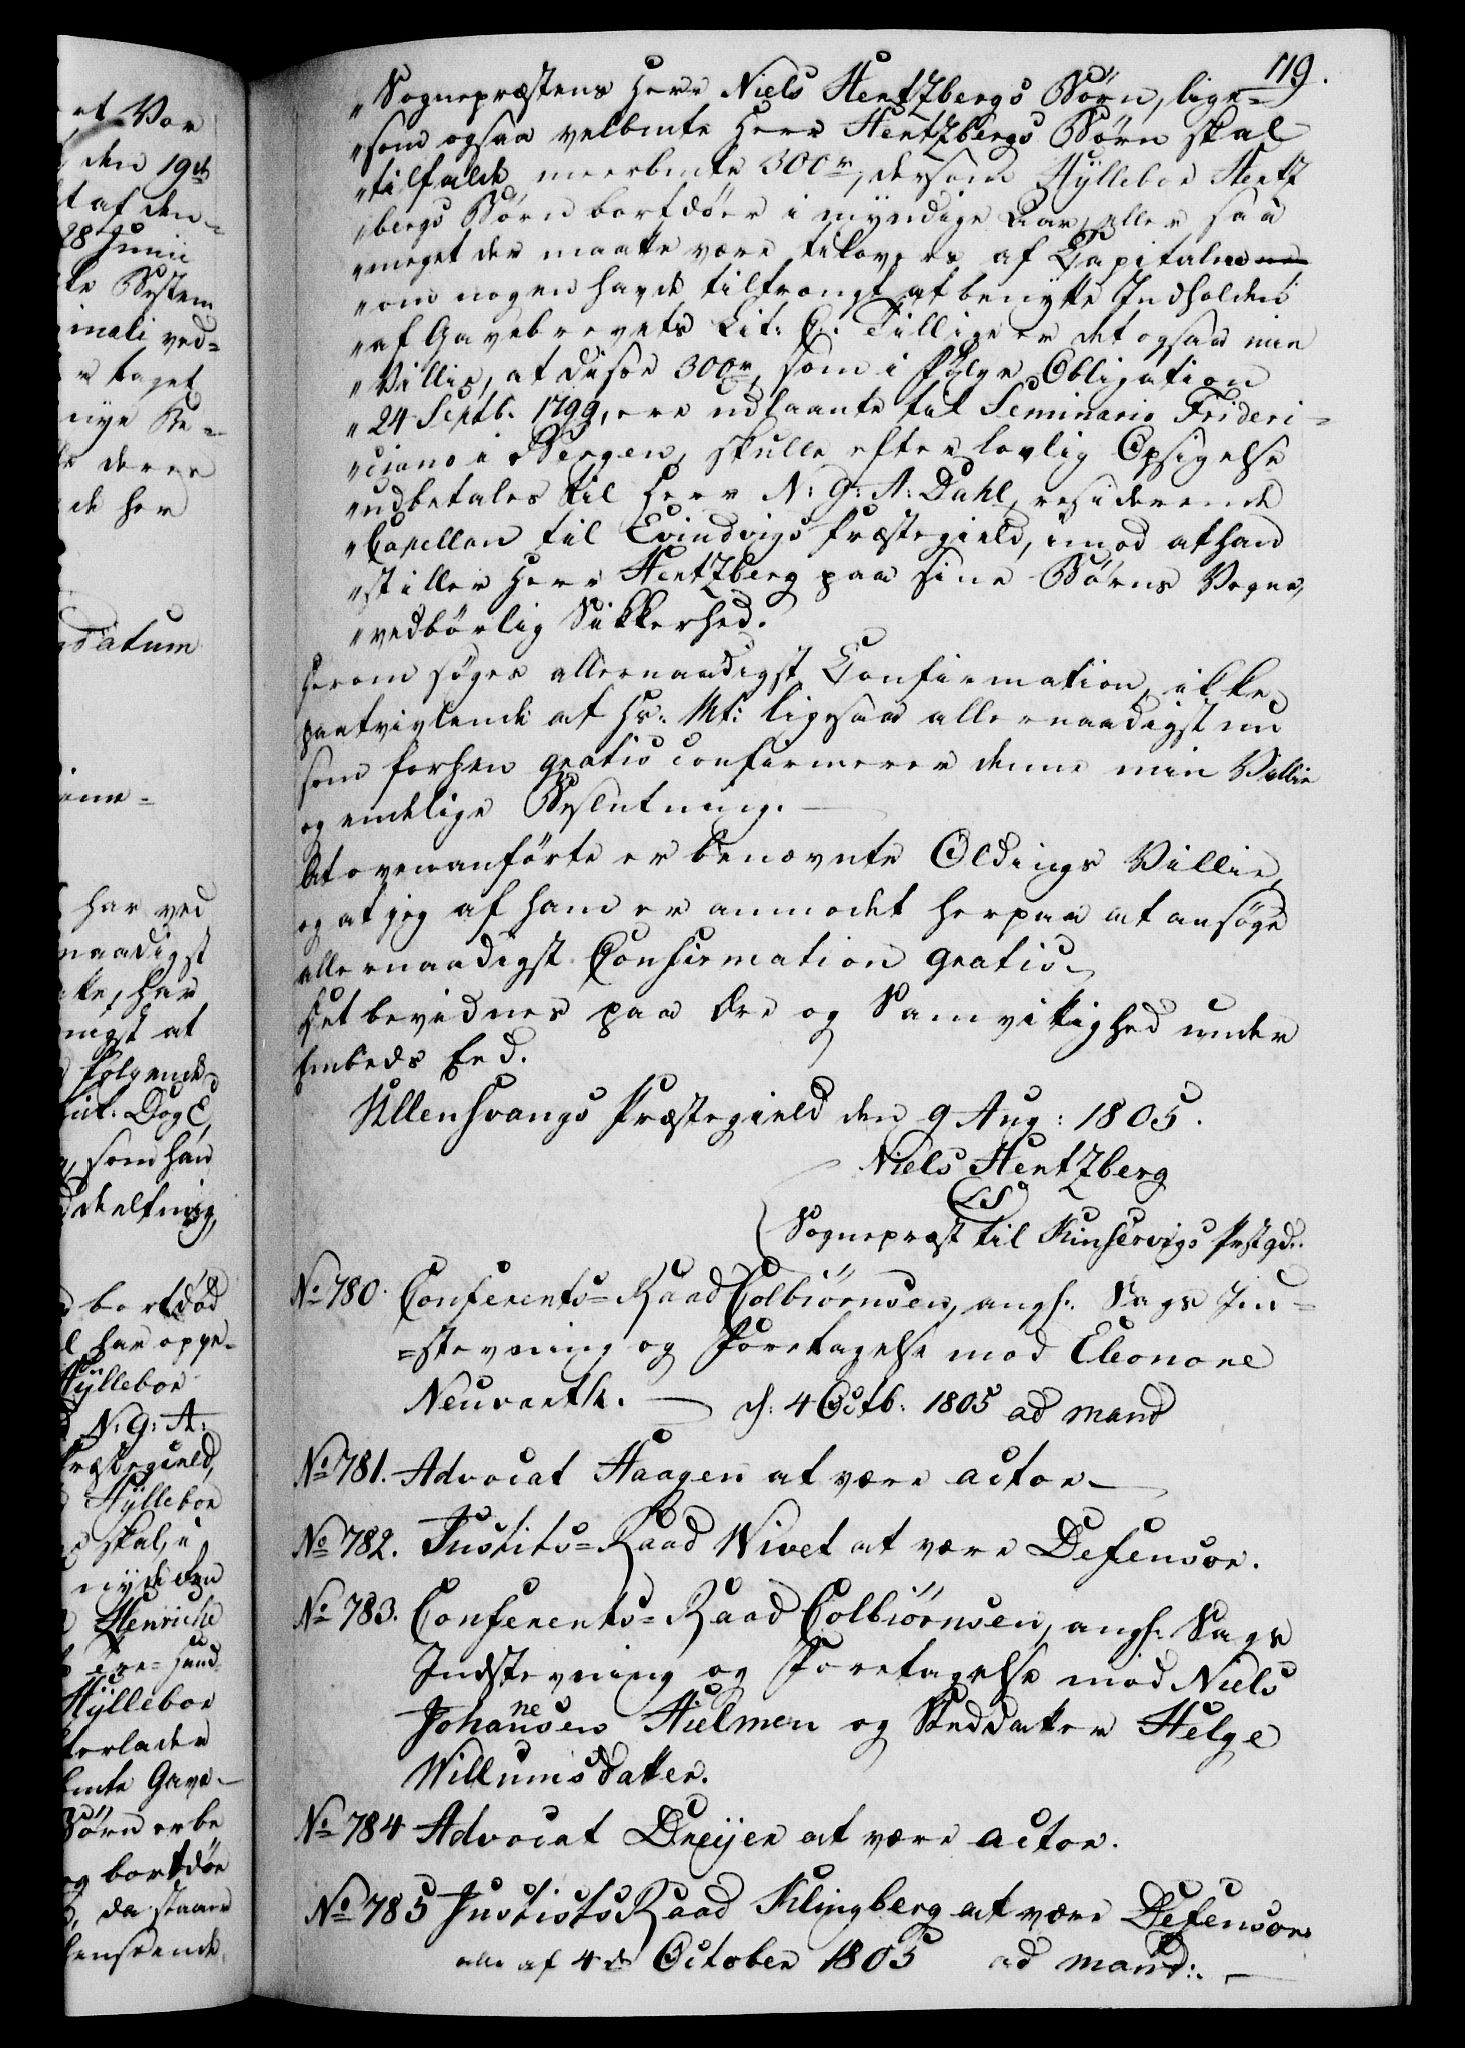 119.
"Sognepræstens Herr Niels Hertzbergs Børn, lige=
"som ogsaa velbmte Herr Hertzbergs Børn skal
"tilfalde meerbmte 300 rd, dersom Hyllebor Hertz
"bergs Børn bortdöer i myndige Aar, eller saa
"meget der maatte være tilovers af Capitalen
"om nogen havde tiltrængt at benytte Indholden
"af Gavebrevets Lit: C. Tillige er det ogsaa min
"Villie, at disse 300 rd, som i følge Obligation
"24 Septb. 1799, ere udlaante til Seminario Frideri=
"ciano i Bergen, skulle efter lovlig Opsigelse
"udbetales til Herr N: G: A: Dahl, residerende
"Capellan til Evindvigs Præstegield, imod at han
"stiller Herr Hertzberg paa sine Børns Vegne,
"vedbörlig Sikkerhed.
Herom søges allernaadigst Confirmation, ikke
paatvivlende at Hs. Mt: ligesaa allernaadigst nu
som forhen gratis confirmerer denne min Villie
og endelige Beslutning. —
At ovenanførte er benævnte Oldings Villie,
og at jeg af ham er anmodet herpaa at ansøge
allernaadigst Confirmation gratis,
Det bevidnes paa Ære og Samvittighed under
Embeds Eed.
Ullensvangs Præstegield den 9 Aug: 1805.
Niels Hertzberg
(LS)
Sognepræst til Kinservigs Prstgd:
No 780. Conferents=Raad Colbiörnsen, angh: Sags In=
=stevning og Foretagelse mod Eleonore
Neuverth. — d: 4 Octb. 1805 ad mand
No 781. Advocat Haagen at være actor —
No 782. Justits=Raad Wivet at være Defensor.
No 783. Conferents=Raad Colbiörnsen, angh: Sags
Indstevning og Foretagelse mod Niels
Johannesen Hielmen og Steddatter Helge
Willumsdatter.
No 784 Advocat Dreijer at være actor.
No 785 JustitsRaad Klingberg at være Defensor
alle af 4de October 1805 ad mand: —